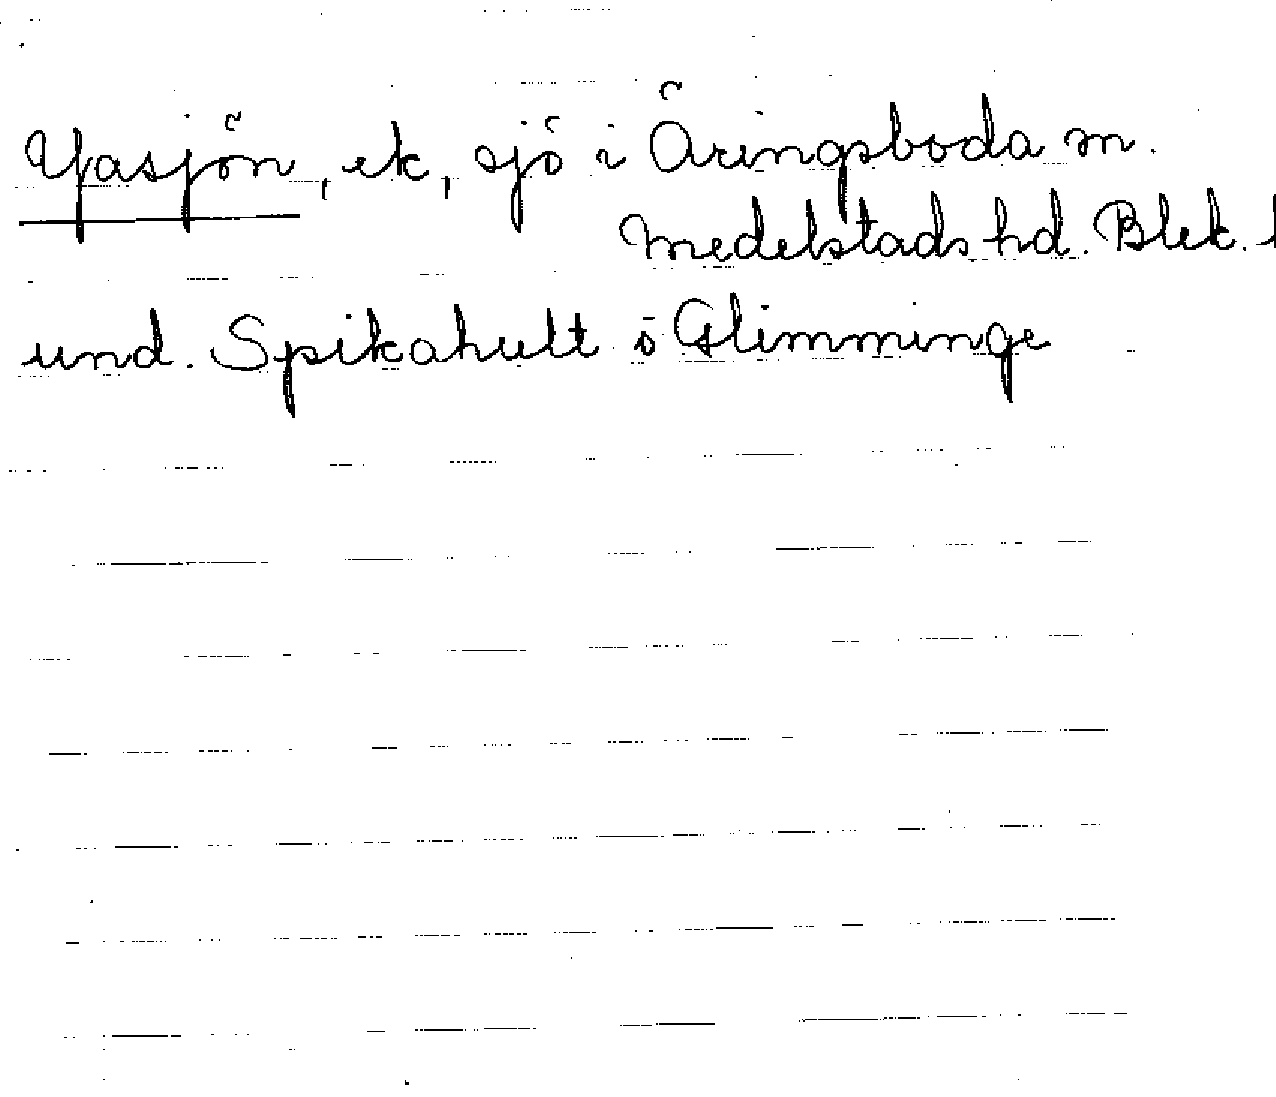 Yasjön, ek, sjö i Öringsboda m.
Medelstads hd. Blek. l
und. Spikahult o Glimminge